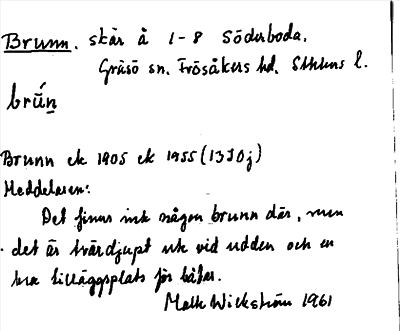 Brunn. skär å 1-8 Söderboda.
Gräsö sn. Frösåkers hd. Sthlms l.
brún̲
Brunn ek 1905 ek 1955 (13I0j)
Meddelaren:
Det finns ink någon brunn där, men
det är tvärdjupt utc vid udden och en
bra tilläggsplats för båtar.
Malk Wickström 1961